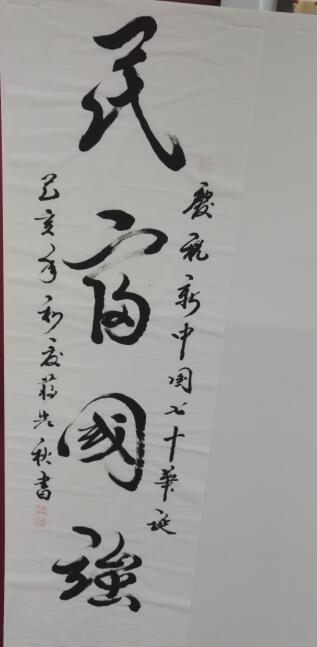 慶祝新中国七十華誕
民富國強
己亥年初夏蔣先秋書